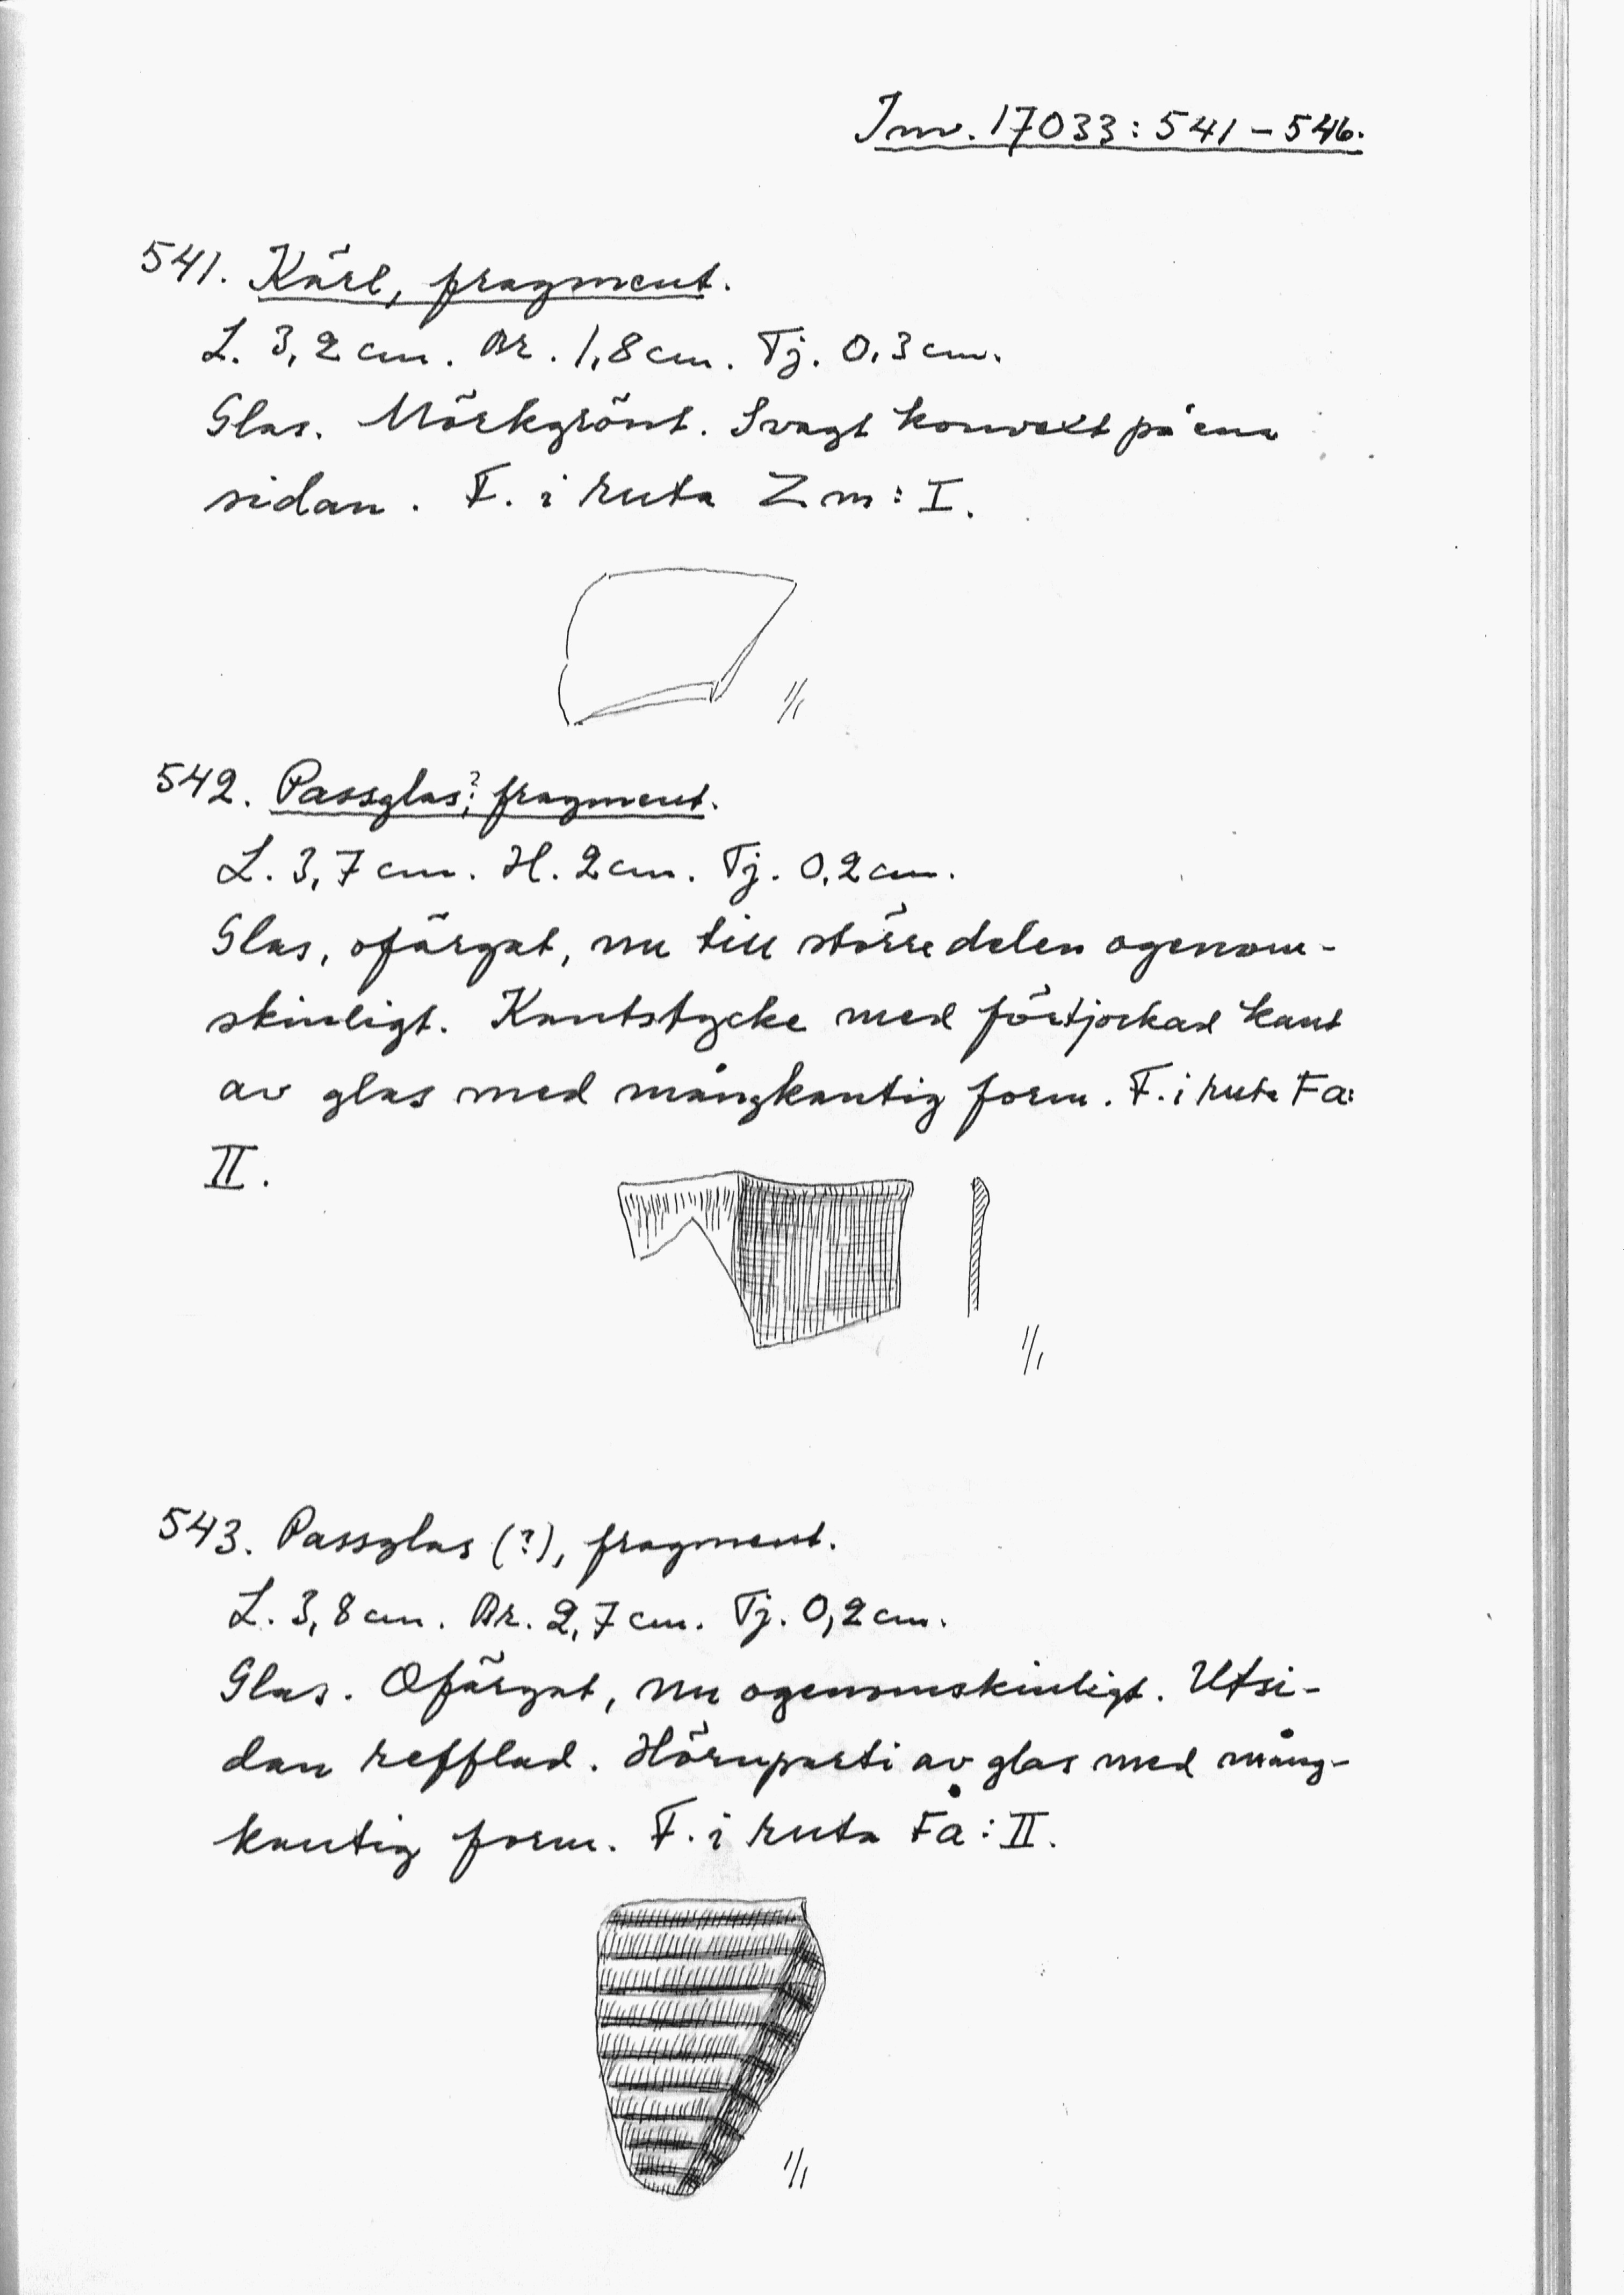 Inv. 17033:541-546.
541. Kärl, fragment.
L. 3,2 cm. Br. 1,8 cm. Tj. 0,3 cm.
Glas. Mörkgrönt. Svagt konvext på ena
sidan. F. i ruta Zm: I.
1/1
542. Passglas?, fragment.
L. 3,7 cm. H. 2 cm. Tj. 0,2 cm.
Glas, ofärgat, nu till större delen ogenom-
skinligt. Kantstycke med förtjockad kant
av glas med mångkantig form. F. i ruta Fa:
II.
1/1
543. Passglas (?), fragment.
L. 3,8 cm. Br. 2,7 cm. Tj. 0,2 cm.
Glas. Ofärgat, nu ogenomskinligt. Utsi-
dan refflad. Hörnparti av glas med mång-
kantig form. F. i ruta Få: II.
1/1